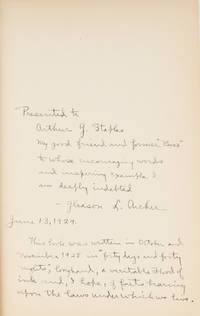 Presented to
Arthur G. Staples
My good friend and former "Boss"
to whose encouraging words
and inspiring example I
am deeply indebted
- Gleason L. Archer
June 13, 1929.
This book was written in October and
November 1928 in "forty days and forty
nights", longhand, a veritable flood of
ink and, I hope, of facts bearing
upon the laws under which we live.